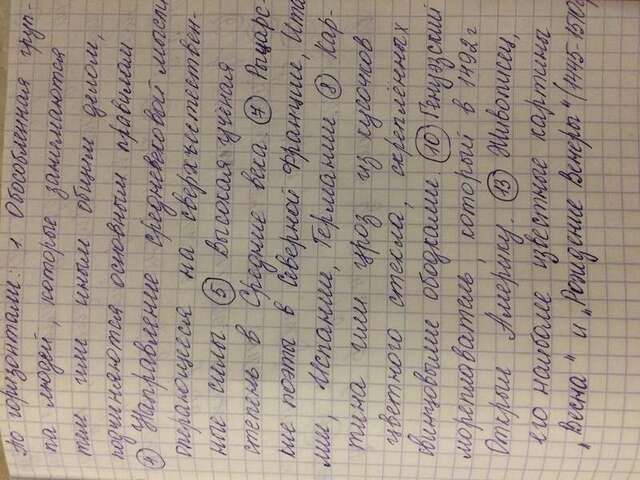 По горизонтали: 1 Обособленная груп-
па людей, которые занимаются
тем или иным общим делом,
подчиняются основным правилам
4 Направление средневековой мысли
опирающееся на сверхъестествен-
ные силы. 5 Высокая учёная
степень в Средние века. 7 Рыцарс-
кие поэты в Северной Франции, Ита
лии, Испании, Германии. 8 Кар-
тина или узоз из кусочков
цветного стекла, скреплённых
свинцовыми ободками. 10 Генуэзский
мореплаватель, который в 1492 г
Открыл Америку. 13 Живописец,
его наиболее известные картины
„Весна" и „Рождение Венеры" (1445-1510г